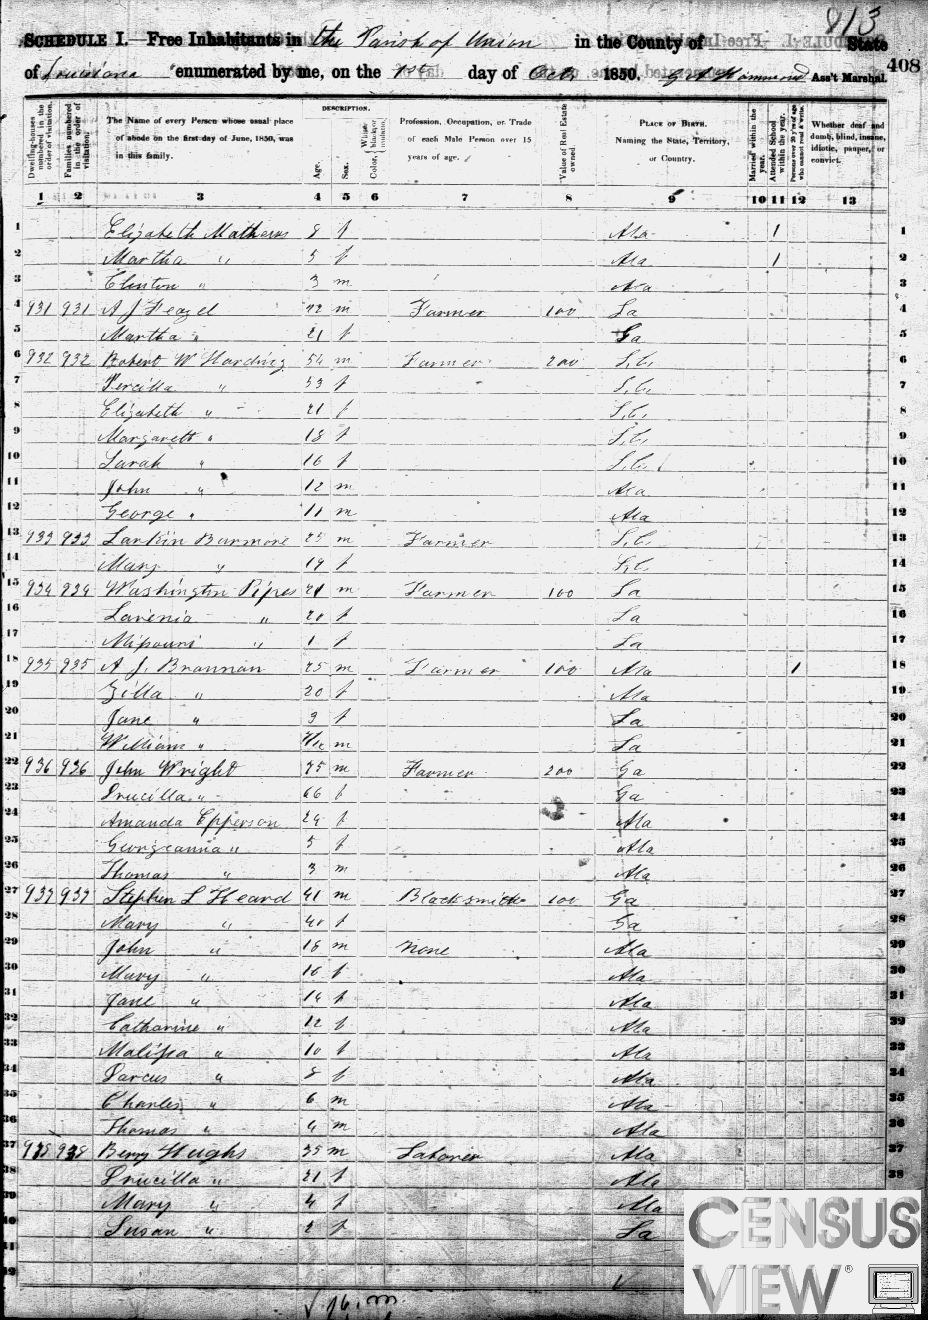 813
SCHEDULE I.—Free Inhabitants in the Parish of Union in the County of State
of Louisiana enumerated by me, on the 1st day of Oct 1850. Ass't Marshal.
408
DESCRIPTION.
Dwelling-houses numbered in the order of visitation.
Families numbered in the order of visitation.
The Name of every Person whose usual place of abode on the first day of June, 1850, was in this family.
Age.
Sex.
Color, White, black, or mulatto.
Profession, Occupation, or Trade of each Male Person over 15 years of age.
Value of Real Estate owned.
PLACE OF BIRTH. Naming the State, Territory, or Country.
Married within the year.
Attended School within the year.
Persons over 20 y'rs of age who cannot read & write.
Whether deaf and dumb, blind, insane, idiotic, pauper, or convict.
1 2 3 4 5 6 7 8 9 10 11 12 13
1 Elizabeth Mathews 8 f Ala 1 1
2 Martha " 5 f Ala 1 2
3 Clinton " 3 m Ala 3
4 931 931 A J Feazel 22 m Farmer 100 La 4
5 Martha " 21 f Ga 5
6 932 932 Robert W Harding 54 m Farmer 200 S.C. 6
7 Percilla " 53 f S.C. 7
8 Elizabeth " 21 f S.C. 8
9 Margarett " 18 f S.C. 9
10 Sarah " 16 f S.C. 10
11 John " 12 m Ala 11
12 George " 11 m Ala 12
13 933 933 Larkin Barmore 25 m Farmer S.C. 13
14 Mary " 19 f S.C. 14
15 934 934 Washington Pipes 21 m Farmer 100 La 15
16 Lavenia " 20 f La 16
17 Missouri " 1 f La 17
18 935 935 A J. Brannan 25 m Farmer 100 Ala 1 18
19 Zilla " 20 f Ala 19
20 Jane " 3 f La 20
21 William " m La 21
22 936 936 John Wright 75 m Farmer 200 Ga 22
23 Drucilla " 66 f Ga 23
24 Amanda Epperson 24 f Ala 24
25 Georgeanna " 5 f Ala 25
26 Thomas " 3 m Ala 26
27 937 937 Stephen L Heard 41 m Blacksmith 100 Ga 27
28 Mary " 40 f Ga 28
29 John " 18 m None Ala 29
30 Mary " 16 f Ala 30
31 Jane " 14 f Ala 31
32 Catharine " 12 f Ala 32
33 Malissa " 10 f Ala 33
34 Darcus " 8 f Ala 34
35 Charles " 6 m Ala 35
36 Thomas " 4 m Ala 36
37 938 938 Berry Hughs 35 m Laborer Ala 37
38 Drucilla " 21 f Ala 38
39 Mary " 4 f Ala
40 Susan " 2 f La
41
42
16. m.
CENSUS
VIEW®